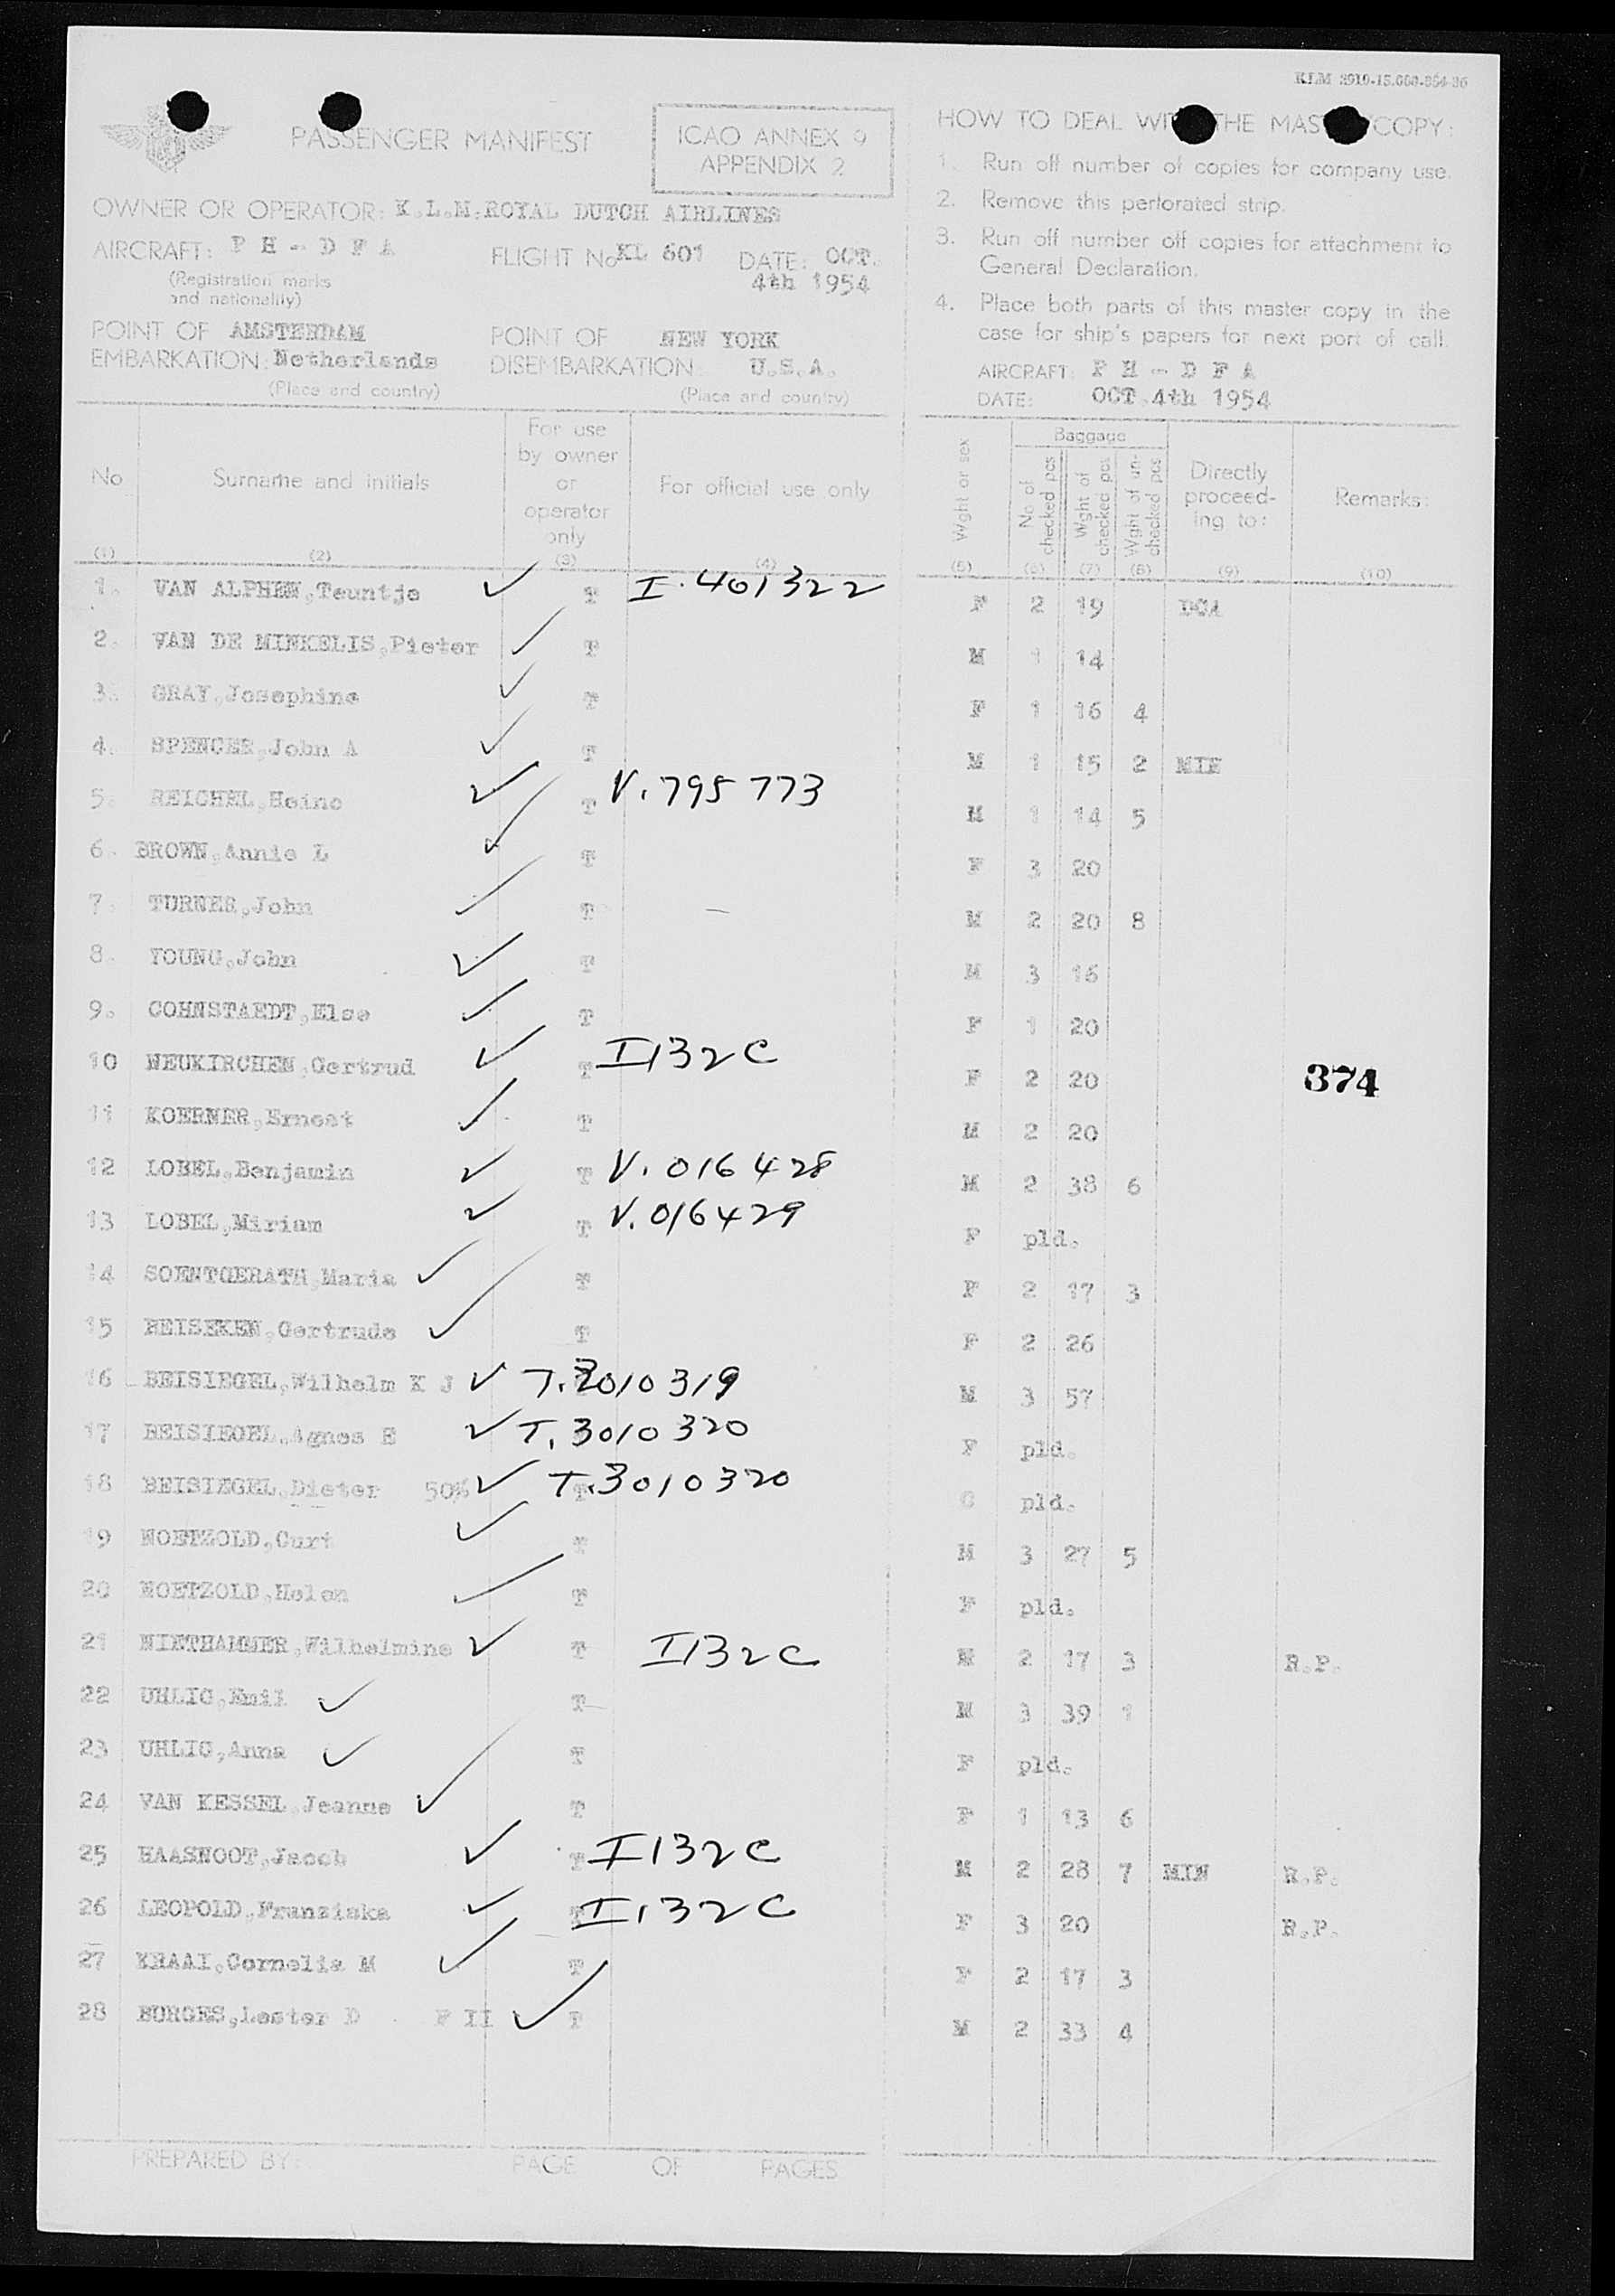 KLM 2910-15.000-854-36
PASSENGER MANIFEST
ICAO ANNEX 9
APPENDIX 2
OWNER OR OPERATOR: K.L.M. ROYAL DUTCH AIRLINES
AIRCRAFT: P H - D F A
(Registration marks
and nationality)
FLIGHT No KL 601
DATE: OCT.
4th 1954
POINT OF AMSTERDAM
EMBARKATION: Netherlands
(Place and country)
POINT OF NEW YORK
DISEMBARKATION: U.S.A.
(Place and country)
HOW TO DEAL WITH THE MASTERCOPY:
1. Run off number of copies for company use.
2. Remove this perforated strip.
3. Run off number off copies for attachment to
General Declaration.
4. Place both parts of this master copy in the
case for ship's papers for next port of call.
AIRCRAFT: P H - D F A
DATE: OCT 4th 1954
No
(1)
Surname and initials
(2)
For use
by owner
or
operator
only
(3)
For official use only
(4)
Wght or sex
(5)
Baggage
No of checked pcs
(6)
Wght of checked pcs
(7)
Wght of un-checked pcs
(8)
Directly
proceed-
ing to:
(9)
Remarks:
(10)
1. VAN ALPHEN, Teuntje T I. 401322 F 2 19 DCA
2. VAN DE MINKELIS, Pieter T M 1 14
3. GRAY, Josephine T F 1 16 4
4. SPENCER, John A T M 1 15 2
5. REICHEL, Heinc T V. 795773 M 1 14 5
6. BROWN, Annie L T F 3 20
7. TURNER, John T M 2 20 8
8. YOUNG, John T M 3 16
9. COHNSTAEDT, Else T F 1 20
10 NEUKIRCHEN, Gertrud T I132C F 2 20
374
11 KOERNER, Ernest T M 2 20
12 LOBEL, Benjamin T V. 016428 M 2 38 6
13 LOBEL, Miriam T V. 016429 F pld.
14 SOENTGERATH, Maria T F 2 17 3
15 BEISEKEN, Gertrude T F 2 26
16 BEISIEGEL, Wilhelm K J T. 3010319 M 3 57
17 BEISIEGEL, Agnes E T. 3010320 F pld.
18 BEISIEGEL, Dieter 50% T T. 3010320 C pld.
19 NOETZOLD, Curt T M 3 27 5
20 NOETZOLD, Helen T F pld.
21 NIETHAMMER, Wilhelmine T I132C M 2 17 3 R.P.
22 UHLIG, Emil T M 3 39 1
23 UHLIG, Anna T F pld.
24 VAN KESSEL, Jeanne T F 1 13 6
25 HAASNOOT, Jacob T I132C M 2 28 7 MIN R.P.
26 LEOPOLD, Franziska T I132C F 3 20 R.P.
27 KRAAI, Cornelia M T F 2 17 3
28 BORGES, Lester D F II T M 2 33 4
PREPARED BY:
PAGE OF PAGES